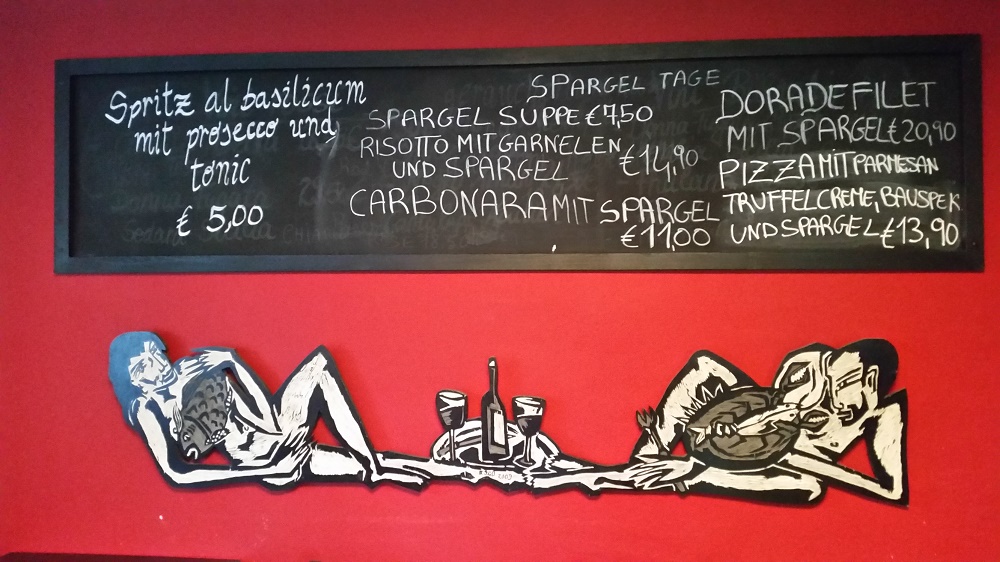 Spritz al basilicum
mit prosecco und
tonic
€ 5,00
SPARGEL TAGE
SPARGEL SUPPE €7,50
RISOTTO MIT GARNELEN
UND SPARGEL €14,90
CARBONARA MIT SPARGEL
€11,00
DORADE FILET
MIT SPARGEL €20,90
PIZZA MIT PARMESAN
TRUFFELCREME, BAUSPEK
UND SPARGEL €13,90